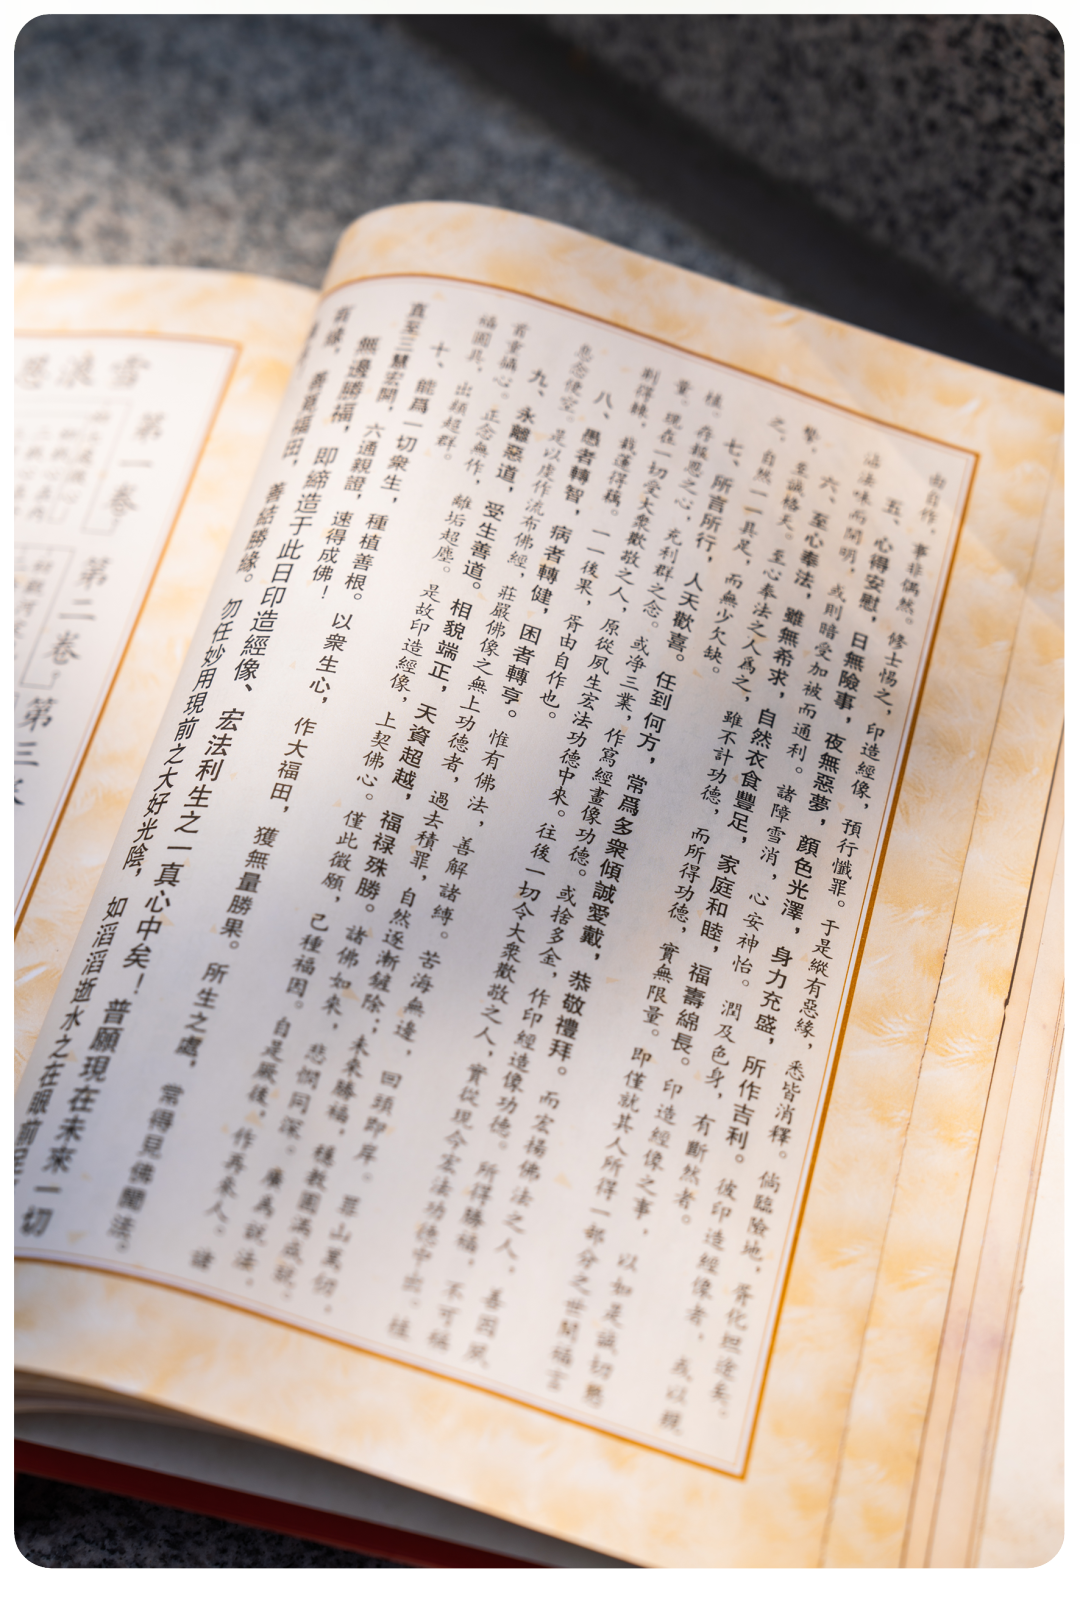 由自作，事非偶然。修士惕之，印造經像，預行懺罪。于是縱有惡緣，悉皆消釋。倘臨險地，胥化坦途矣。
五、心得安慰，日無險事，夜無惡夢，顏色光澤，身力充盛，所作吉利。彼印造經像者，或以親
沾法味而開明，或則暗受加被而通利。諸障雪消，心安神怡。潤及色身，有斷然者。
六、至心奉法，雖無希求，自然衣食豐足，家庭和睦，福壽綿長。印造經像之事，以如是誠切懇
摯，至誠格天。至心奉法之人爲之，雖不計功德，而所得功德，實無限量。即僅就其人所得一部分之世間福言
之，自然一一具足，而無少欠缺。
七、所言所行，人天歡喜。任到何方，常爲多衆傾誠愛戴，恭敬禮拜。而宏楊佛法之人，善因夙
植。存報恩之心，充利群之念。或净三業，作寫經畫像功德。或捨多金，作印經造像功德。所得勝福，不可稱
量。現在一切受大衆歡敬之人，原從夙生宏法功德中來。往後一切令大衆歡敬之人，實從現今宏法功德中出。植
荊得棘，栽蓮得藕。一一後果，胥由自作也。
八、愚者轉智，病者轉健，困者轉亨。惟有佛法，善解諸縛。苦海無邊，回頭即岸。罪山萬仞，
息念便空。是以虔作流布佛經，莊嚴佛像之無上功德者，過去積罪，自然逐漸鏟除；未來勝福，穩教圓滿成就。
九、永離惡道，受生善道。相貌端正，天資超越，福禄殊勝。諸佛如來，悲憫同深。廣爲説法，
首重攝心。正念無作，離垢超塵。是故印造經像，上契佛心。僅此微願，已種福因。自是厥後，作再來人。諸
福圓具，出類超群。
十、能爲一切衆生，種植善根。以衆生心，作大福田，獲無量勝果。所生之處，常得見佛聞法。
直至三慧宏開，六通親證，速得成佛！
無邊勝福，即締造于此日印造經像、宏法利生之一真心中矣！普願現在未來一切
有緣，善覓福田，善結勝緣。勿任妙用現前之大好光陰，如滔滔逝水之在眼前
雪浪
第一卷
第二卷
第三